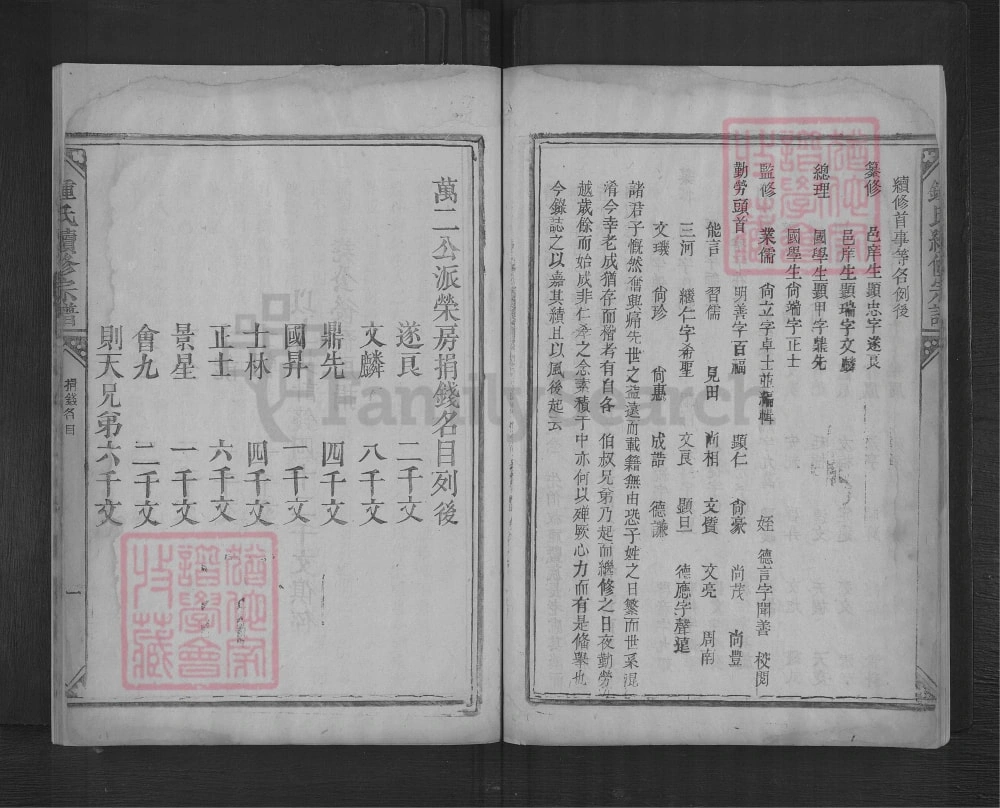 續修首事等名例後
纂修 邑庠生顯忠字遂良
邑庠生顯瑞字文麟
總理 國學生顯甲字鼎先
國學生尙端字正士
監修 業儒 尙立字卓士並編輯 姪 德言字聞善 校閱
勤勞頭首 明善字百福 顯仁 尙豪 尚茂 尙豐
能言 習儒 見田 尚相 文質 文亮 周南
三河 繼仁字希聖 文良 顯旦 德應字聲遠
文璣 尙珍 尙惠 成誥 德謙
諸君子慨然奮興痛先世之益遠而載籍無由恐子姓之日繁而世系混
淆今幸老成猶存而稽者有自各 伯叔兄弟乃起而繼修之日夜勤勞
越歲餘而始成非仁孝之念素積于中亦何以殫厥心力而有是脩舉也
今錄誌之以嘉其績且以風後起云
萬二公派榮房捐錢名目列後
遂良 二千文
文麟 八千文
鼎先 四千文
國昇 一千文
士林 四千文
正士 六千文
景星 一千文
會九 二千文
則天兄弟六千文
鍾氏續修宗譜
捐錢名目
一
FamilySearch